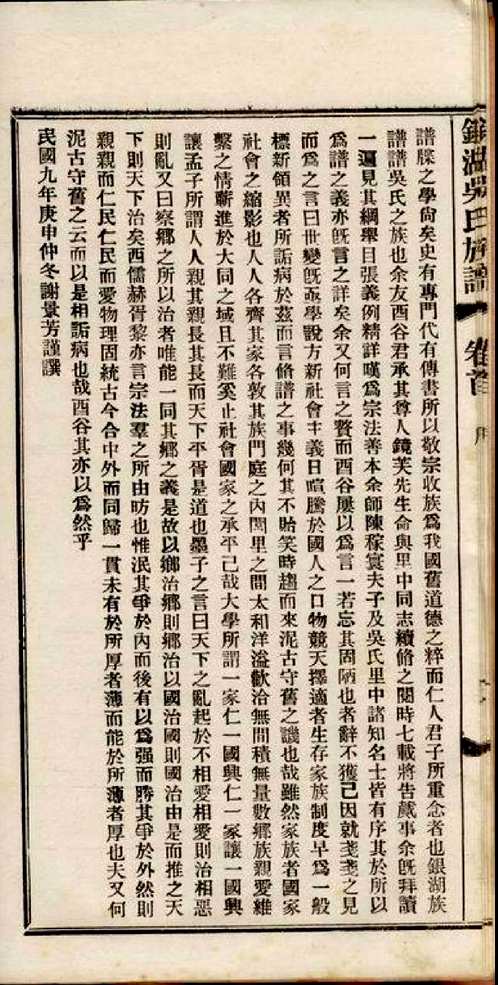 銀湖吳氏族譜 卷首
譜牒之學尙矣史有專門代有傳書所以敬宗收族爲我國舊道德之粹而仁人君子所重念者也銀湖族
譜譜吳氏之族也余友酉谷君承其尊人鏡芙先生命與里中同志續脩之閱時七載將吿蕆事余旣拜讀
一遍見其綱舉目張義例精詳嘆爲宗法善本余師陳稼寰夫子及吳氏里中諸知名士皆有序其於所以
爲譜之義亦旣言之詳矣余又何言之贅而酉谷屢以爲言一若忘其固陋也者辭不獲已因就戔戔之見
而爲之言曰世變旣亟學說方新社會主義日喧騰於國人之口物競天擇適者生存家族制度早爲一般
標新領異者所詬病於茲而言脩譜之事幾何其不貽笑時趨而來泥古守舊之譏也哉雖然家族者國家
社會之縮影也人人各齊其家各敦其族門庭之內閭里之間太和洋溢歡洽無間積無量數鄉族親愛維
繫之情蘄進於大同之域且不難奚止社會國家之承平已哉大學所謂一家仁一國興仁一家讓一國興
讓孟子所謂人人親其親長其長而天下平胥是道也墨子之言曰天下之亂起於不相愛相愛則治相惡
則亂又曰察鄉之所以治者唯能一同其鄉之義是故以鄉治鄉則鄉治以國治國則國治由是而推之天
下則天下治矣西儒赫胥黎亦言宗法羣之所由昉也惟泯其爭於內而後有以爲强而勝其爭於外然則
親親而仁民仁民而愛物理固統古今合中外而同歸一貫未有於所厚者薄而能於所薄者厚也夫又何
泥古守舊之云而以是相詬病也哉酉谷其亦以爲然乎
民國九年庚申仲冬謝景芳謹譔